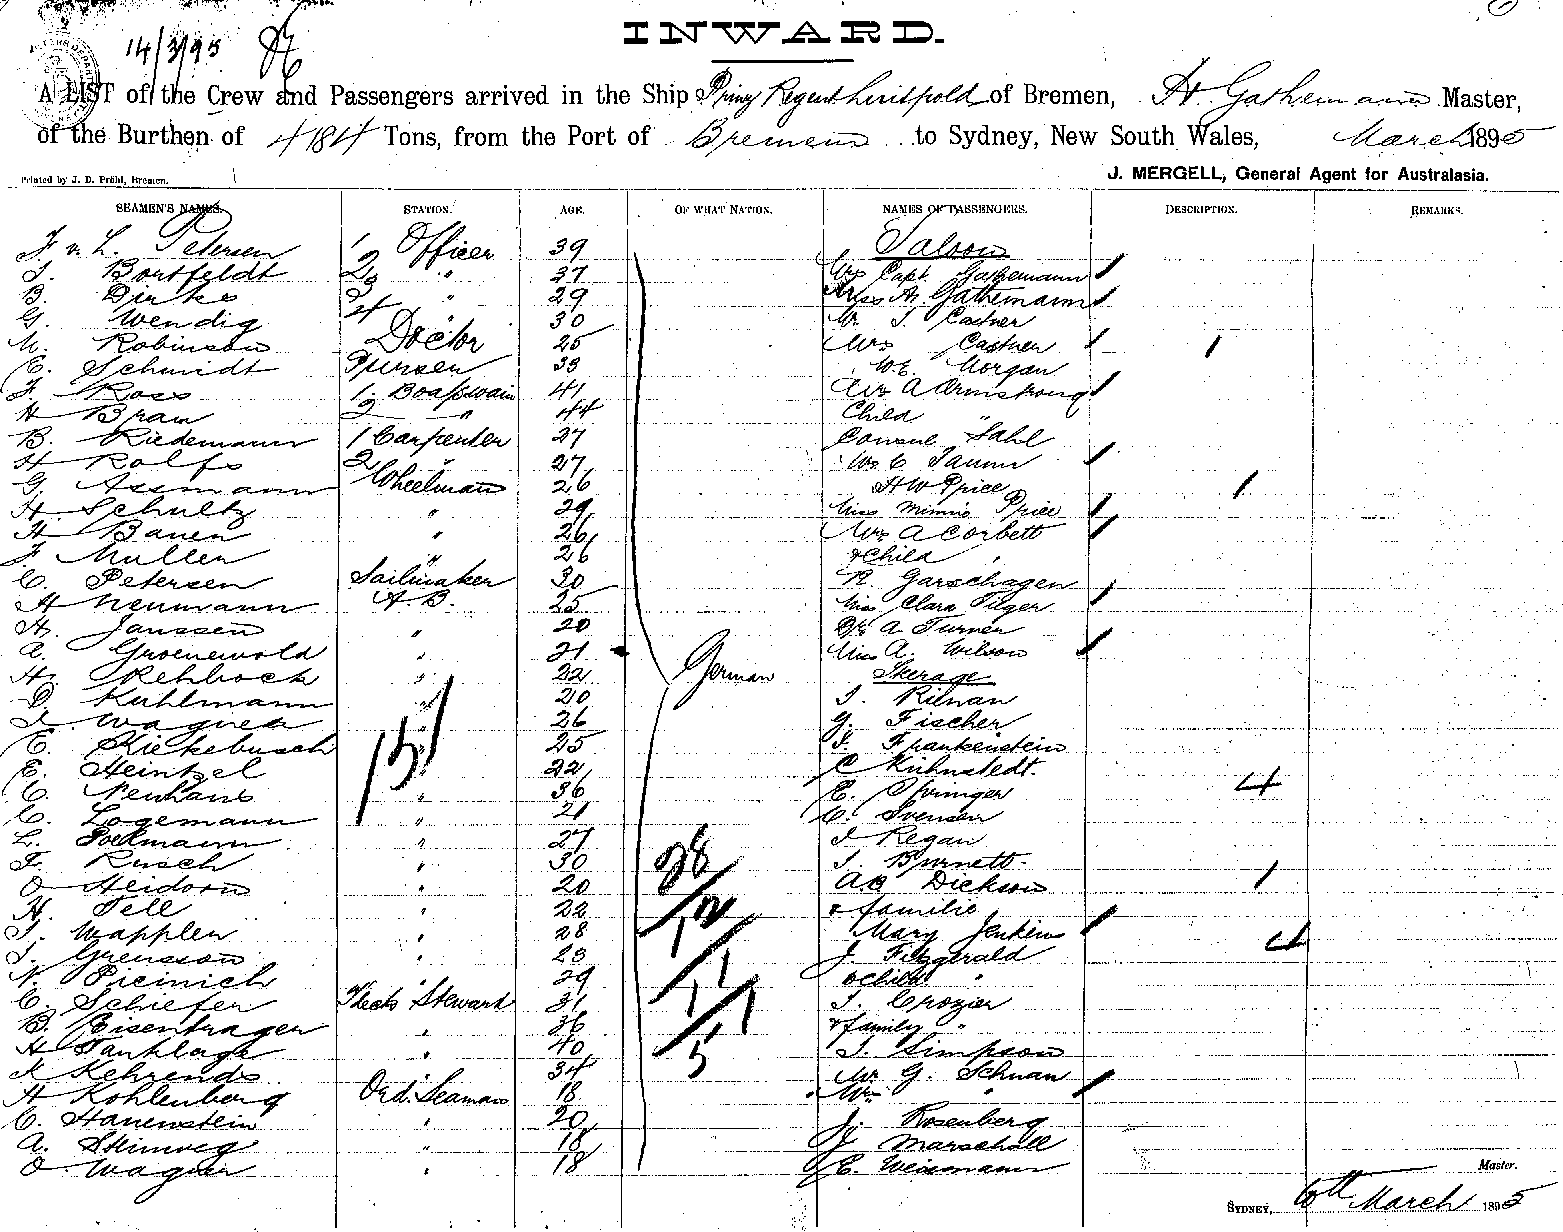 14/3/95
INWARD.
A LIST of the Crew and Passengers arrived in the Ship Prinz Regent Luitpold of Bremen, H. Gathemann Master,
of the Burthen of 4184 Tons, from the Port of Bremen to Sydney, New South Wales, March 1895
Printed by J. D. Prühl, Bremen.
J. MERGELL, General Agent for Australasia.
SEAMEN'S NAMES. STATION. AGE. OF WHAT NATION. NAMES OF PASSENGERS. DESCRIPTION. REMARKS.
F. v. L. Petersen 1 Officer 39 Saloon
Bortfeldt 2 " 37 Mrs Capt. Gathemann
B. Dirks 3 " 29 Miss M. Gathemann
G. Wendig 4 " 30 Mr Castner
Robinson Doctor 25 Mrs Castner
C. Schmidt 33 Morgan
F. Ross 1 Boatswain 41 Mrs A Armstrong
H Braw 2 " 44 Child "
B. Riedemann 1 Carpenter 27 Sahl
H Rolfs 2 " 27 Mrs C
G. Assmann Wheelman 26 H W Price
H. Schultz " 29 Miss Minnie Price
H. Bauer " 26 Mrs A Corbett
F. Muller " 26 & Child "
C. Petersen Sailmaker 30 R. Garschagen
H Neumann A.B. 25 Miss Clara Pilger
H. Janssen " 20 A Turner
A. Groenewold " 21 Miss A. Wilson
H. Rehbock " 22 German Sterage
D Kuhlmann " 20
Wagner " 26 G. Fischer
C. Kiekebusch " 25 Frankenstein
E. Heintzel " 22 C Kuhnstedt.
C. Neuhaus " 36 E. Springer
C. Logemann " 21 C. Svensen
L. Poelmann " 27 Regan
F. Rusch " 30 Burnett
O Heidorn " 20 A C Dickson
H. Tell " 22 & familie
Wappler " 28 Mary Jenkins
Grensson " 23 J. Fitzgerald
N. Pieinich " 29 & Child "
C. Schiefer Stewart 31 Crozier
B. Eisentrager " 36 & family "
H Tanklage " 40 Simpson
Kehrends " 34 Mr G. Schuan
H Kohlenberg Ord. Seaman 18 Mrs "
C. Hauenstein " 20 J. Rosenberg
A. Steinweg " 18 J. Marschall
O Wagner " 18 E. Weismann
151
28
12
11
1
1
5
4
4
Master.
SYDNEY, 6th March 1895